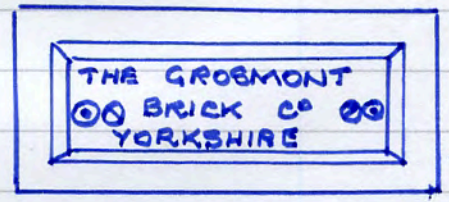 THE GROSMONT
BRICK Cº
YORKSHIRE